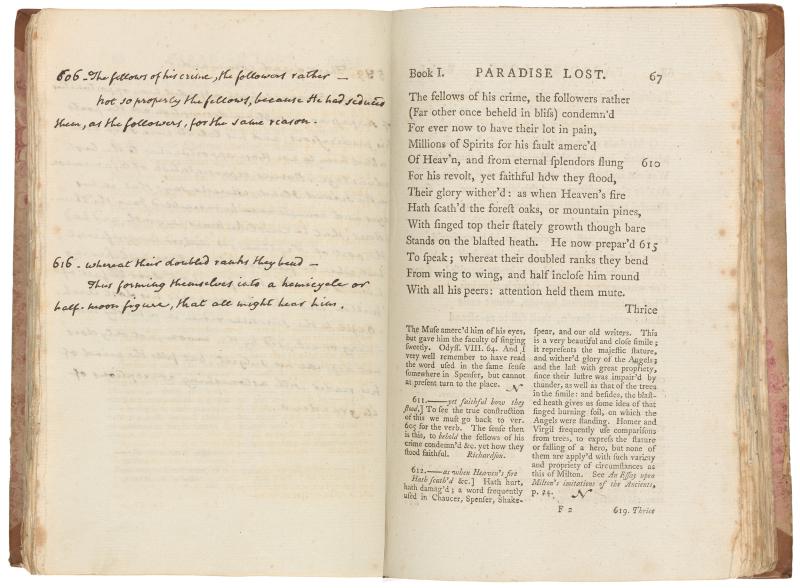 606 - The fellows of his crime, the followers rather —
not so properly the fellows, because He had seduced
them, as the followers, for the same reason.
616 - whereat their doubled ranks they bend —
Thus forming themselves into a hemicycle or
half-moon figure, that all might hear him.
Book I. PARADISE LOST. 67
The fellows of his crime, the followers rather
(Far other once beheld in bliſs) condemn'd
For ever now to have their lot in pain,
Millions of Spirits for his fault amerc'd
Of Heav'n, and from eternal ſplendors flung 610
For his revolt, yet faithful how they ſtood,
Their glory wither'd: as when Heaven's fire
Hath ſcath'd the foreſt oaks, or mountain pines,
With ſinged top their ſtately growth though bare
Stands on the blaſted heath. He now prepar'd 615
To ſpeak; whereat their doubled ranks they bend
From wing to wing, and half incloſe him round
With all his peers: attention held them mute.
Thrice
The Muſe amerc'd him of his eyes,
but gave him the faculty of ſinging
ſweetly. Odyſſ. VIII. 64. And I
very well remember to have read
the word uſed in the ſame ſenſe
ſomewhere in Spenſer, but cannot
at preſent turn to the place. N
611. —— yet faithful how they
ſtood,] To ſee the true conſtruction
of this we muſt go back to ver.
605 for the verb. The ſenſe then
is this, to behold the fellows of his
crime condemn'd &c. yet how they
ſtood faithful. Richardſon.
612. —— as when Heaven's fire
Hath ſcath'd &c.] Hath hurt,
hath damag'd; a word frequently
uſed in Chaucer, Spenſer, Shake-
ſpear, and our old writers. This
is a very beautiful and cloſe ſimile;
it repreſents the majeſtic ſtature,
and wither'd glory of the Angels;
and the laſt with great propriety,
ſince their luſtre was impair'd by
thunder, as well as that of the trees
in the ſimile: and beſides, the blaſt-
ed heath gives us ſome idea of that
ſinged burning ſoil, on which the
Angels were ſtanding. Homer and
Virgil frequently uſe compariſons
from trees, to expreſs the ſtature
or falling of a hero, but none of
them are apply'd with ſuch variety
and propriety of circumſtances as
this of Milton. See An Eſſay upon
Milton's imitations of the Ancients,
p. 24. N
F 2 619. Thrice